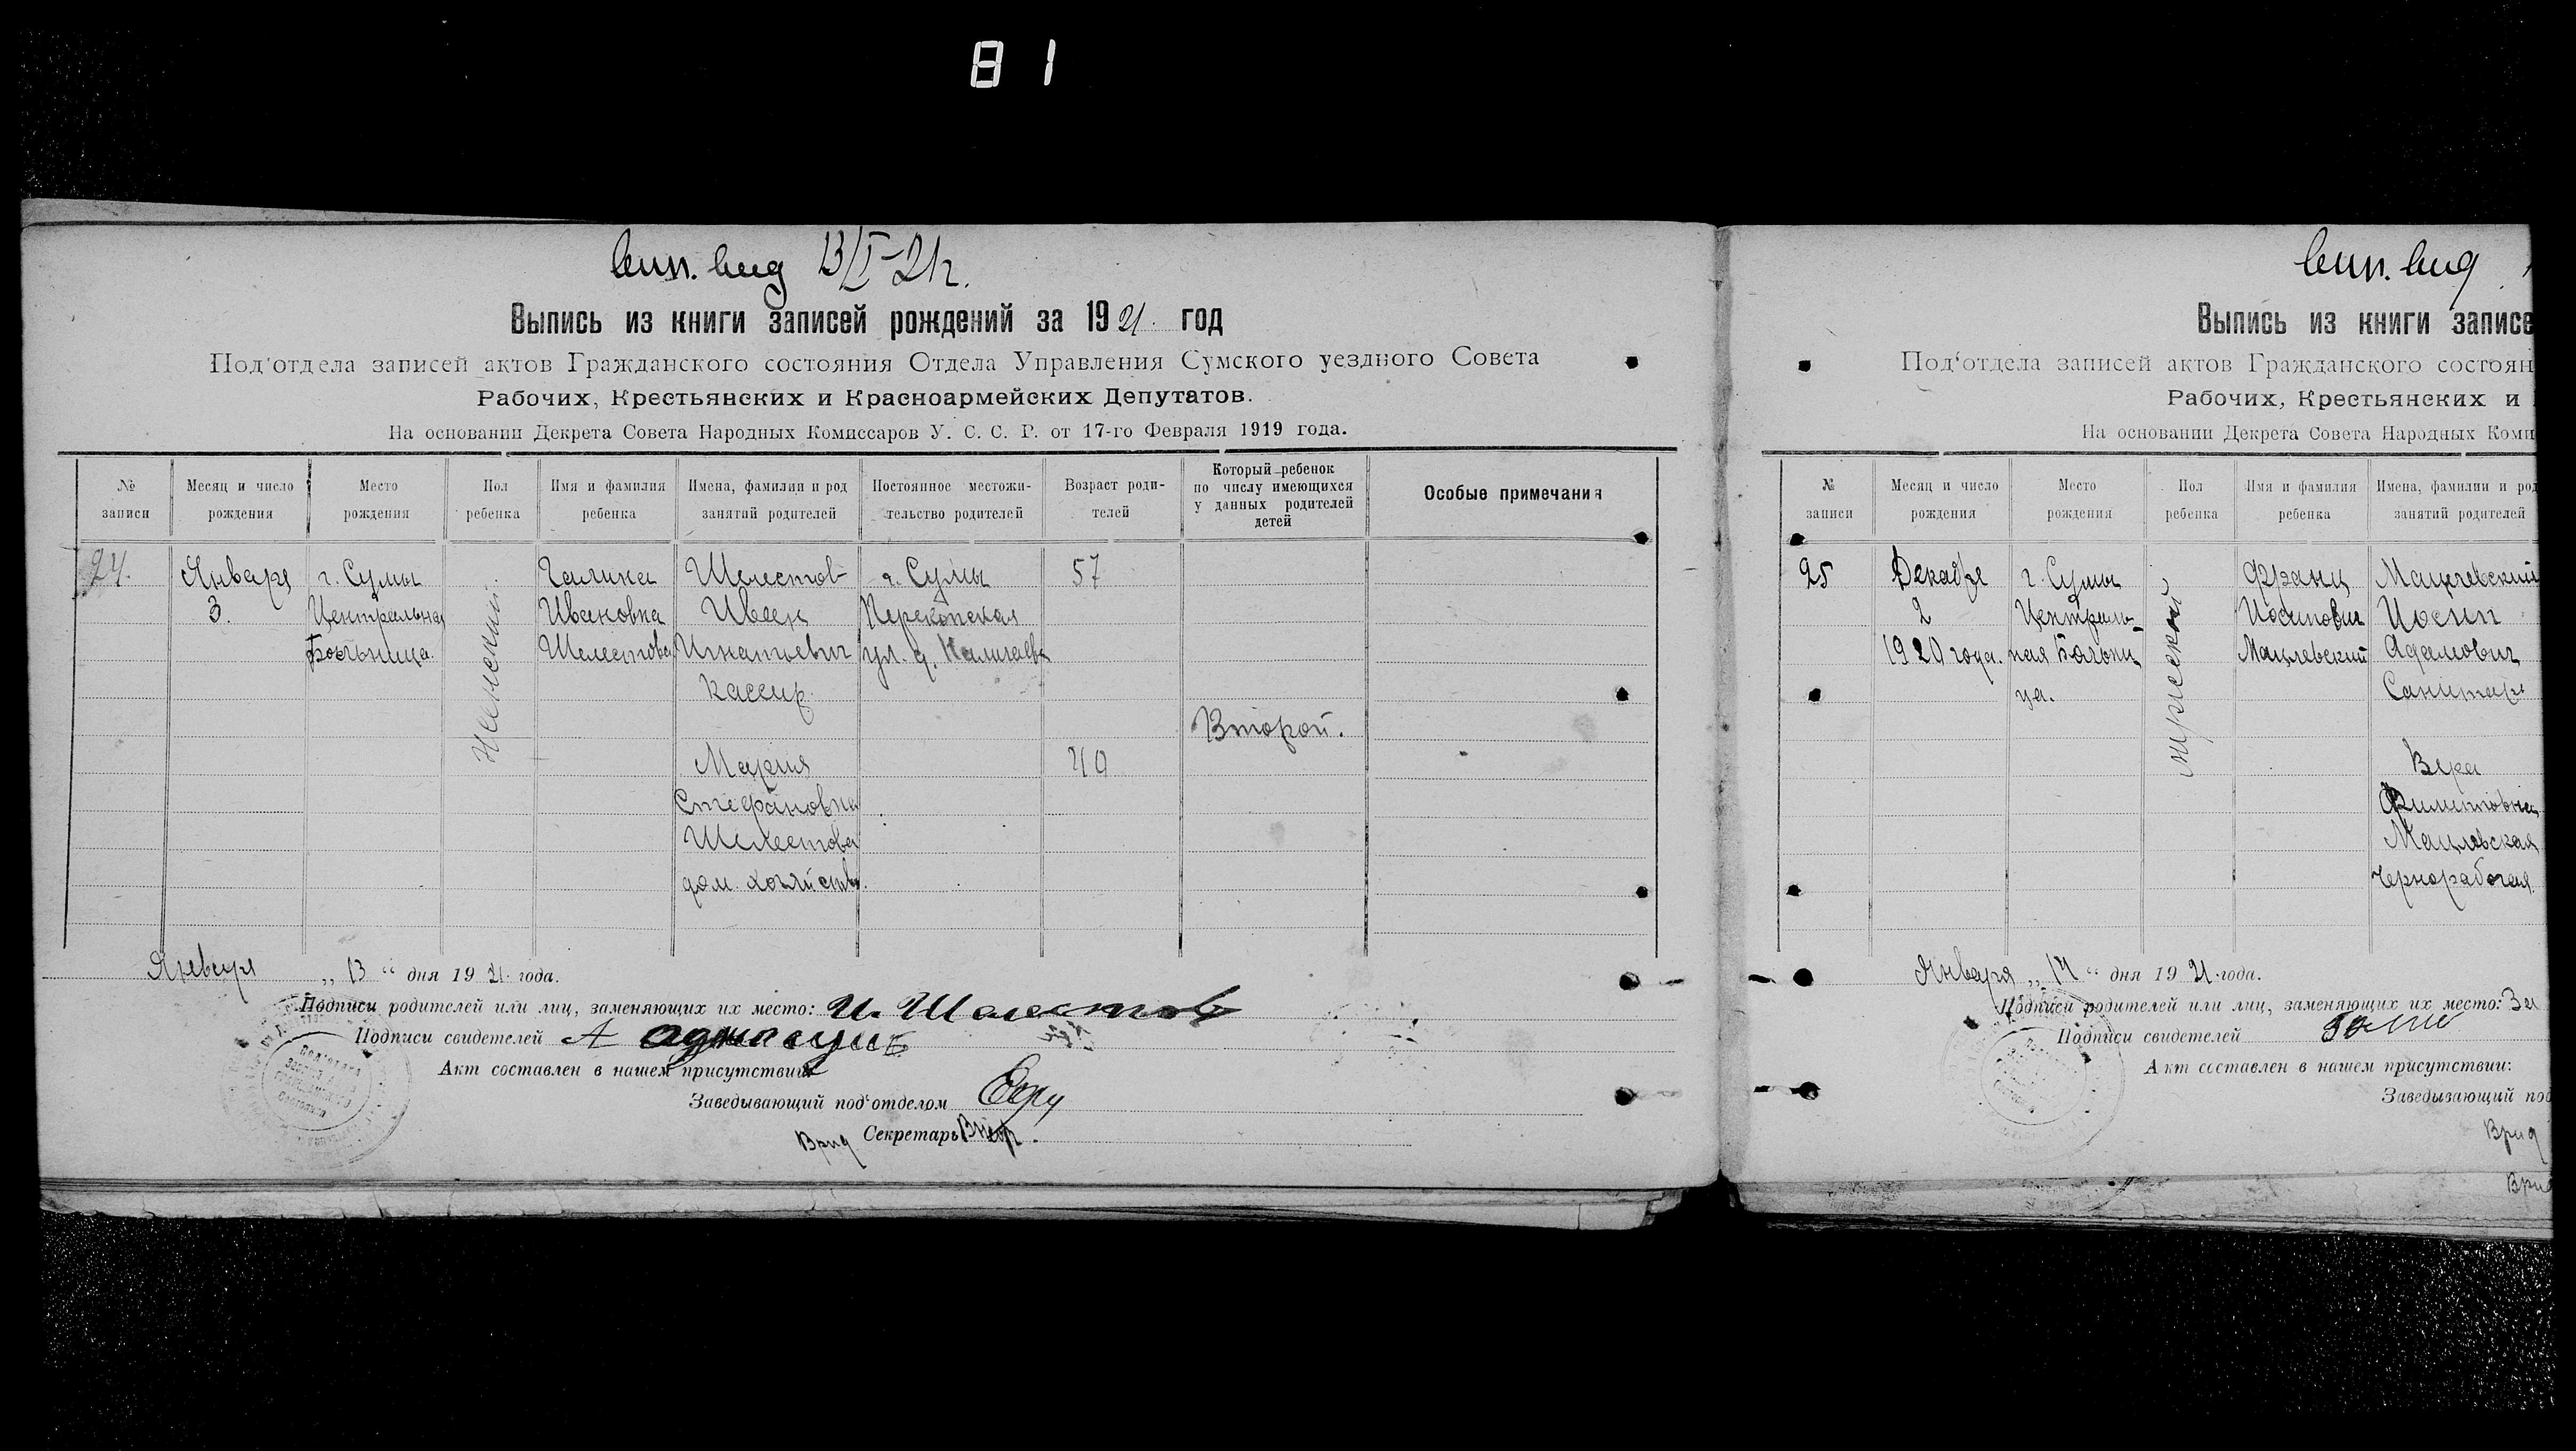 81
вып. выд 13/I-21г.
Выпись из книги записей рождений за 1921. год
Под'отдела записей актов Гражданского состояния Отдела Управления Сумского уездного Совета
Рабочих, Крестьянских и Красноармейских Депутатов.
На основании Декрета Совета Народных Комиссаров У. С. С. Р. от 17-го Февраля 1919 года.
№ записи
Месяц и число рождения
Место рождения
Пол ребенка
Имя и фамилия ребенка
Имена, фамилии и род занятий родителей
Постоянное местожительство родителей
Возраст родителей
Который ребенок по числу имеющихся у данных родителей детей
Особые примечания
24.
Января
3.
г. Сумы
Центральная
Больница.
Женский.
Галина
Ивановна
Шелестова
Шелестов
Иван
Игнатьевич
кассир.
Мария
Стефановна
Шелестова
дом. хозяйство.
г. Сумы
Перекопская
ул. д.
57
40
Второй.
Января „ 13 “ дня 1921. года.
Подписи родителей или лиц, заменяющих их место: И. Шелестов
Подписи свидетелей А
Акт составлен в нашем присутствии:
Заведывающий под'отделом
Врид Секретарь
вып. выд
Выпись из книги записе
Под'отдела записей актов Гражданского состоян
Рабочих, Крестьянских и
На основании Декрета Совета Народных Коми
№ записи
Месяц и число рождения
Место рождения
Пол ребенка
Имя и фамилия ребенка
Имена, фамилии и род занятий родителей
25
Декабре
2
1920 года.
г. Сумы
Централь-
ная Больни
ца.
мужской
Франц
Иосипович
Мацлевский
Мацлевский
Иосип
Адамович
Санитар
Вера
Филиповна
Мацлевская
Чернорабочая.
Января „ 14 “ дня 1921. года.
Подписи родителей или лиц, заменяющих их место: За
Подписи свидетелей
Акт составлен в нашем присутствии:
Заведывающий под
Врид
Врид